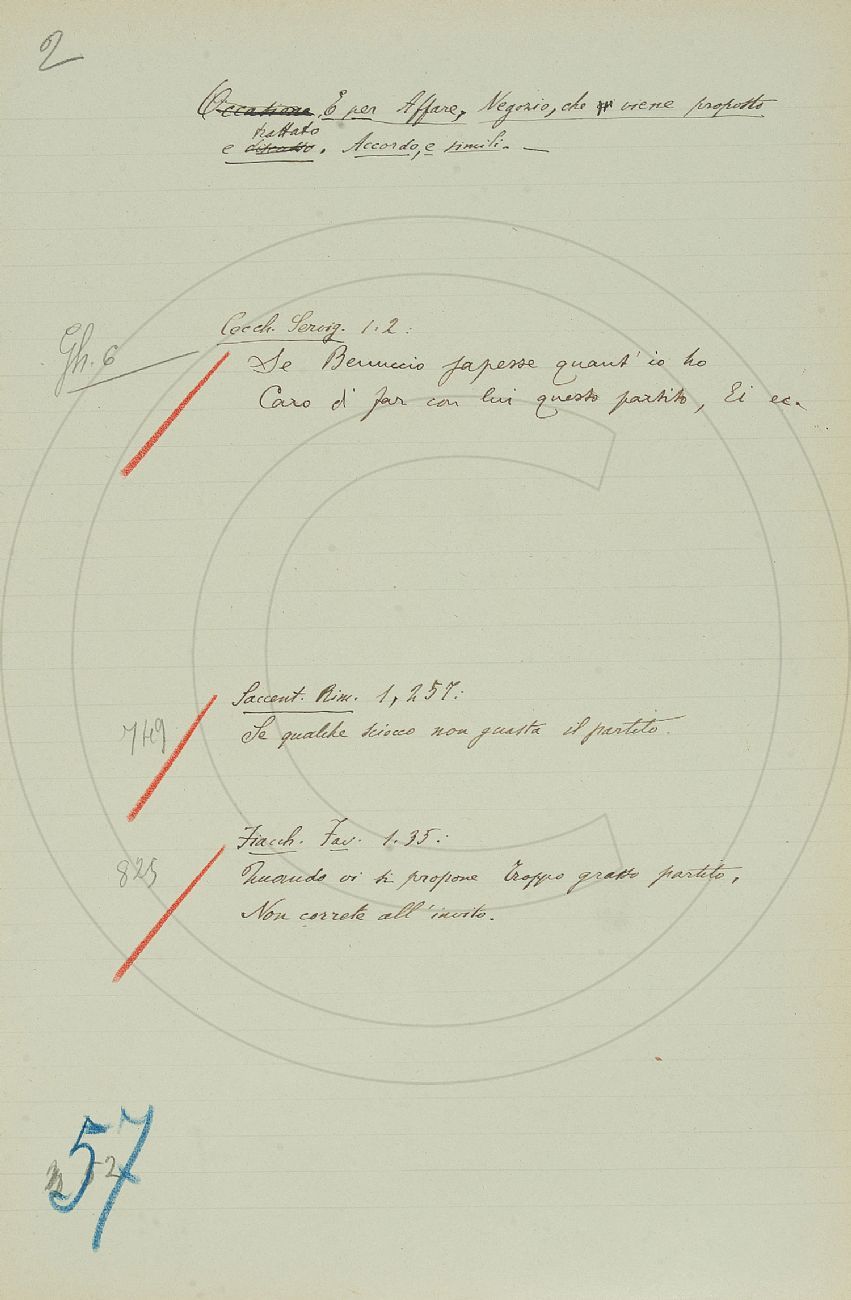 2
Occasione. E per Affare, Negozio, che viene proposto
trattato
e discusso. Accordo, e simili. —
Gh. 6
Cecch. Servig. 1. 2:
Se Benuccio sapesse quant' io ho
Caro di far con lui questo partito, Ei ec.
749
Saccent. Rim. 1, 257:
Se qualche sciocco non guasta il partito.
825
Fiacch. Fav. 1. 35:
Quando vi si propone troppo grasso partito,
Non correte all' invito.
57
52